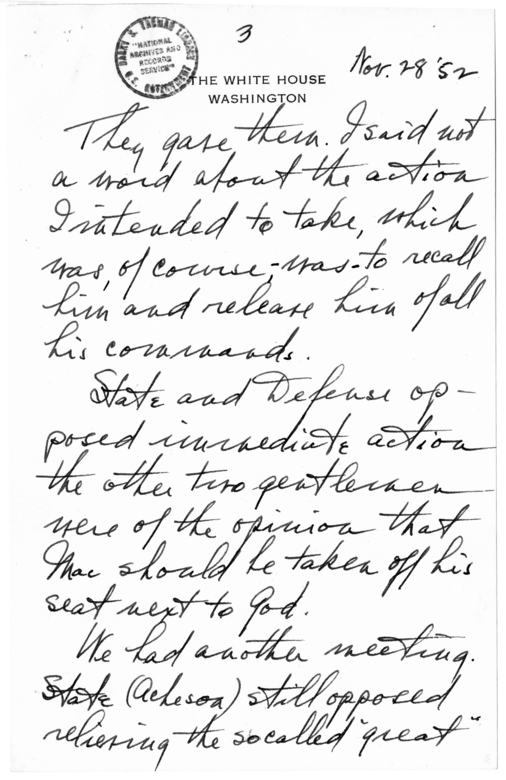 3
HARRY S. TRUMAN LIBRARY
"NATIONAL
ARCHIVES AND
RECORDS
SERVICE"
U.S. GOVERNMENT
Nov. 28 '52
THE WHITE HOUSE
WASHINGTON
They gave them. I said not
a word about the action
I intended to take, which
was, of course,-was-to recall
him and release him of all
his commands.
State and Defense op-
posed immediate action
the other two gentlemen
were of the opinion that
Mac should be taken off his
seat next to God.
We had another meeting.
State (Acheson) still opposed
relieving the socalled "great"